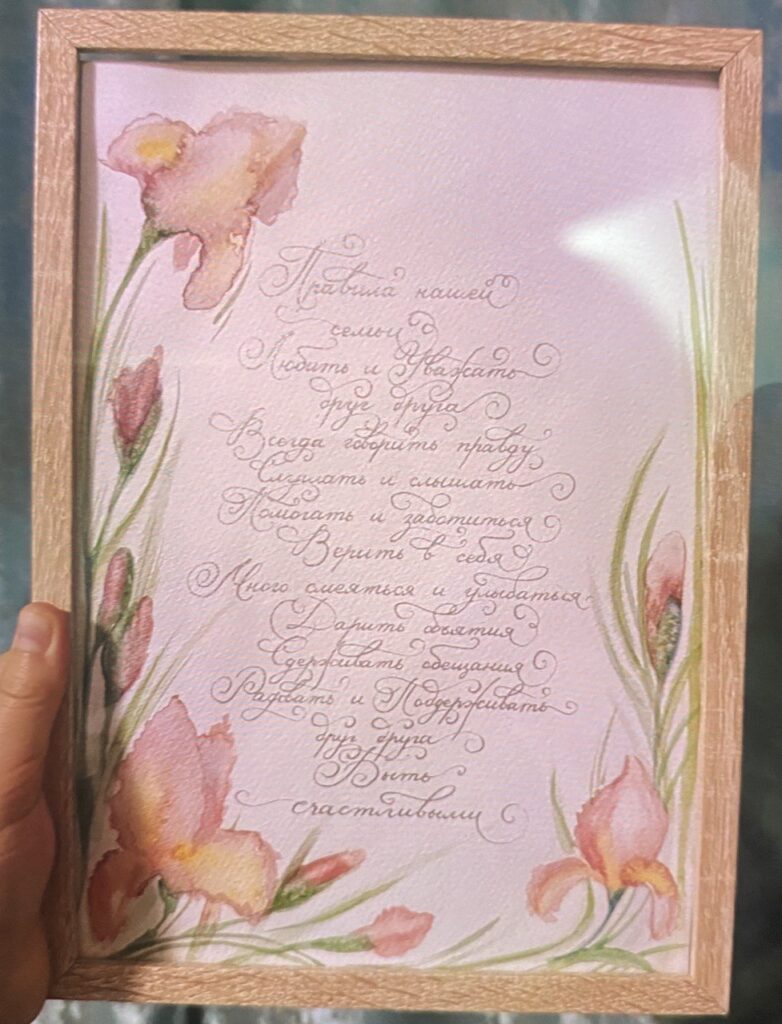 Правила нашей
семьи
Любить и Уважать
друг друга
Всегда говорить правду
Слушать и слышать
Помогать и заботиться
Верить в себя
Много смеяться и улыбаться
Дарить объятия
Сдерживать обещания
Радовать и Поддерживать
друг друга
Быть
счастливыми